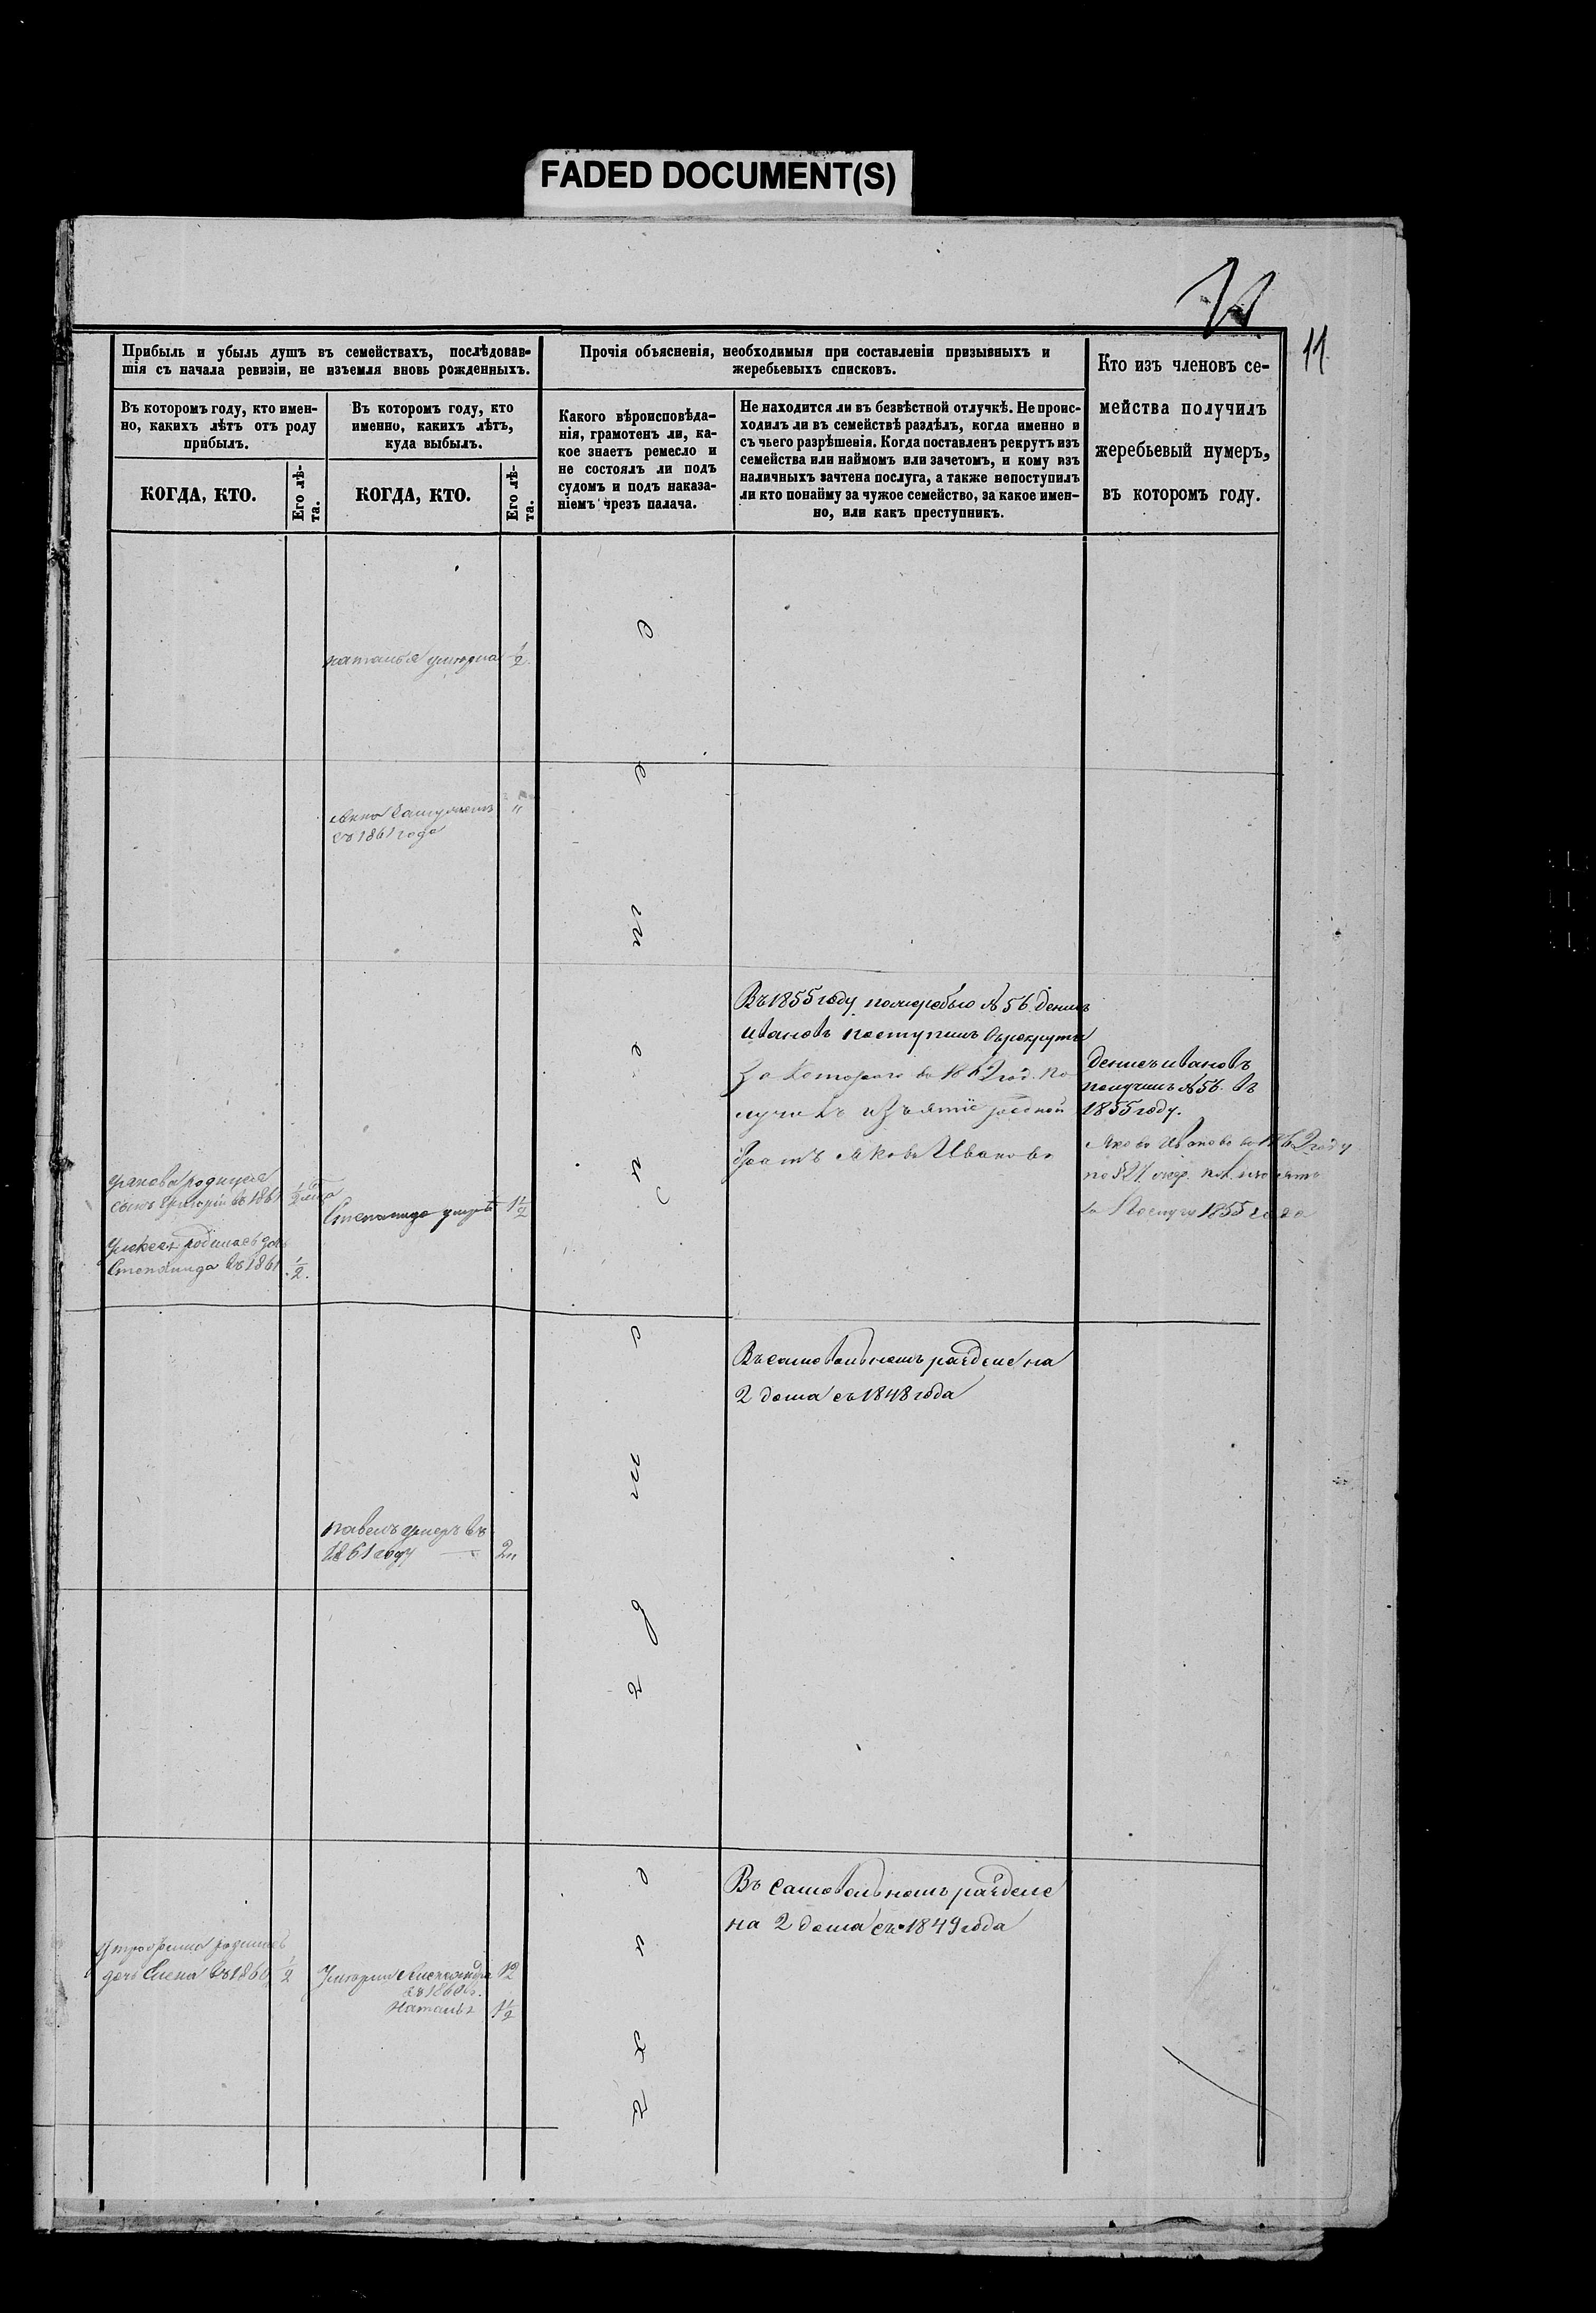 FADED DOCUMENT(S)
11
Прибыль и убыль душъ въ семействахъ, послѣдовав-
шія съ начала ревизіи, не изъемля вновь рожденныхъ.
Въ которомъ году, кто имен-
но, какихъ лѣтъ отъ роду
прибылъ.
КОГДА, КТО.
Его лѣ-
та.
Въ которомъ году, кто
именно, какихъ лѣтъ,
куда выбылъ.
КОГДА, КТО.
Его лѣ-
та.
Прочія объясненія, необходимыя при составленіи призывныхъ и
жеребьевыхъ списковъ.
Какого вѣроисповѣда-
нія, грамотенъ ли, ка-
кое знаетъ ремесло и
не состоялъ ли подъ
судомъ и подъ наказа-
ніемъ чрезъ палача.
Не находится ли въ безвѣстной отлучкѣ. Не проис-
ходилъ ли въ семействѣ раздѣлъ, когда именно и
съ чьего разрѣшенія. Когда поставленъ рекрутъ изъ
семейства или наймомъ или зачетомъ, и кому изъ
наличныхъ зачтена послуга, а также непоступилъ
ли кто понайму за чужое семейство, за какое имен-
но, или какъ преступникъ.
Кто изъ членовъ се-
мейства получилъ
жеребьевый нумеръ,
въ которомъ году.
наталья умерла 1/2
Анна замужемъ "
съ 1861 года
Въ 1855 году по жеребью № 56 Денисъ
Ивановъ поступилъ в рекруты
за котораго въ 1862 год. по
лучилъ изъятіе родной
братъ Яковъ Ивановъ
Денисъ Ивановъ
получилъ № 56. въ
1855 году.
Яковъ Ивановъ въ 1862 году
по § 21
1855 года
родился
сынъ Григорій въ 1861 1/2
родилась дочь
Степанида въ 1861 1/2
Степанида умерла 1 1/2
Въ самовольномъ разделе на
2 дома съ 1848 года
павелъ умеръ въ
1861 году 2
Въ самовольномъ разделе
на 2 дома съ 1849 года
У трофима родилась
дочь Елена въ 1860 1/2
Умерли Александра 12
въ 1860
Наталья 1 1/2